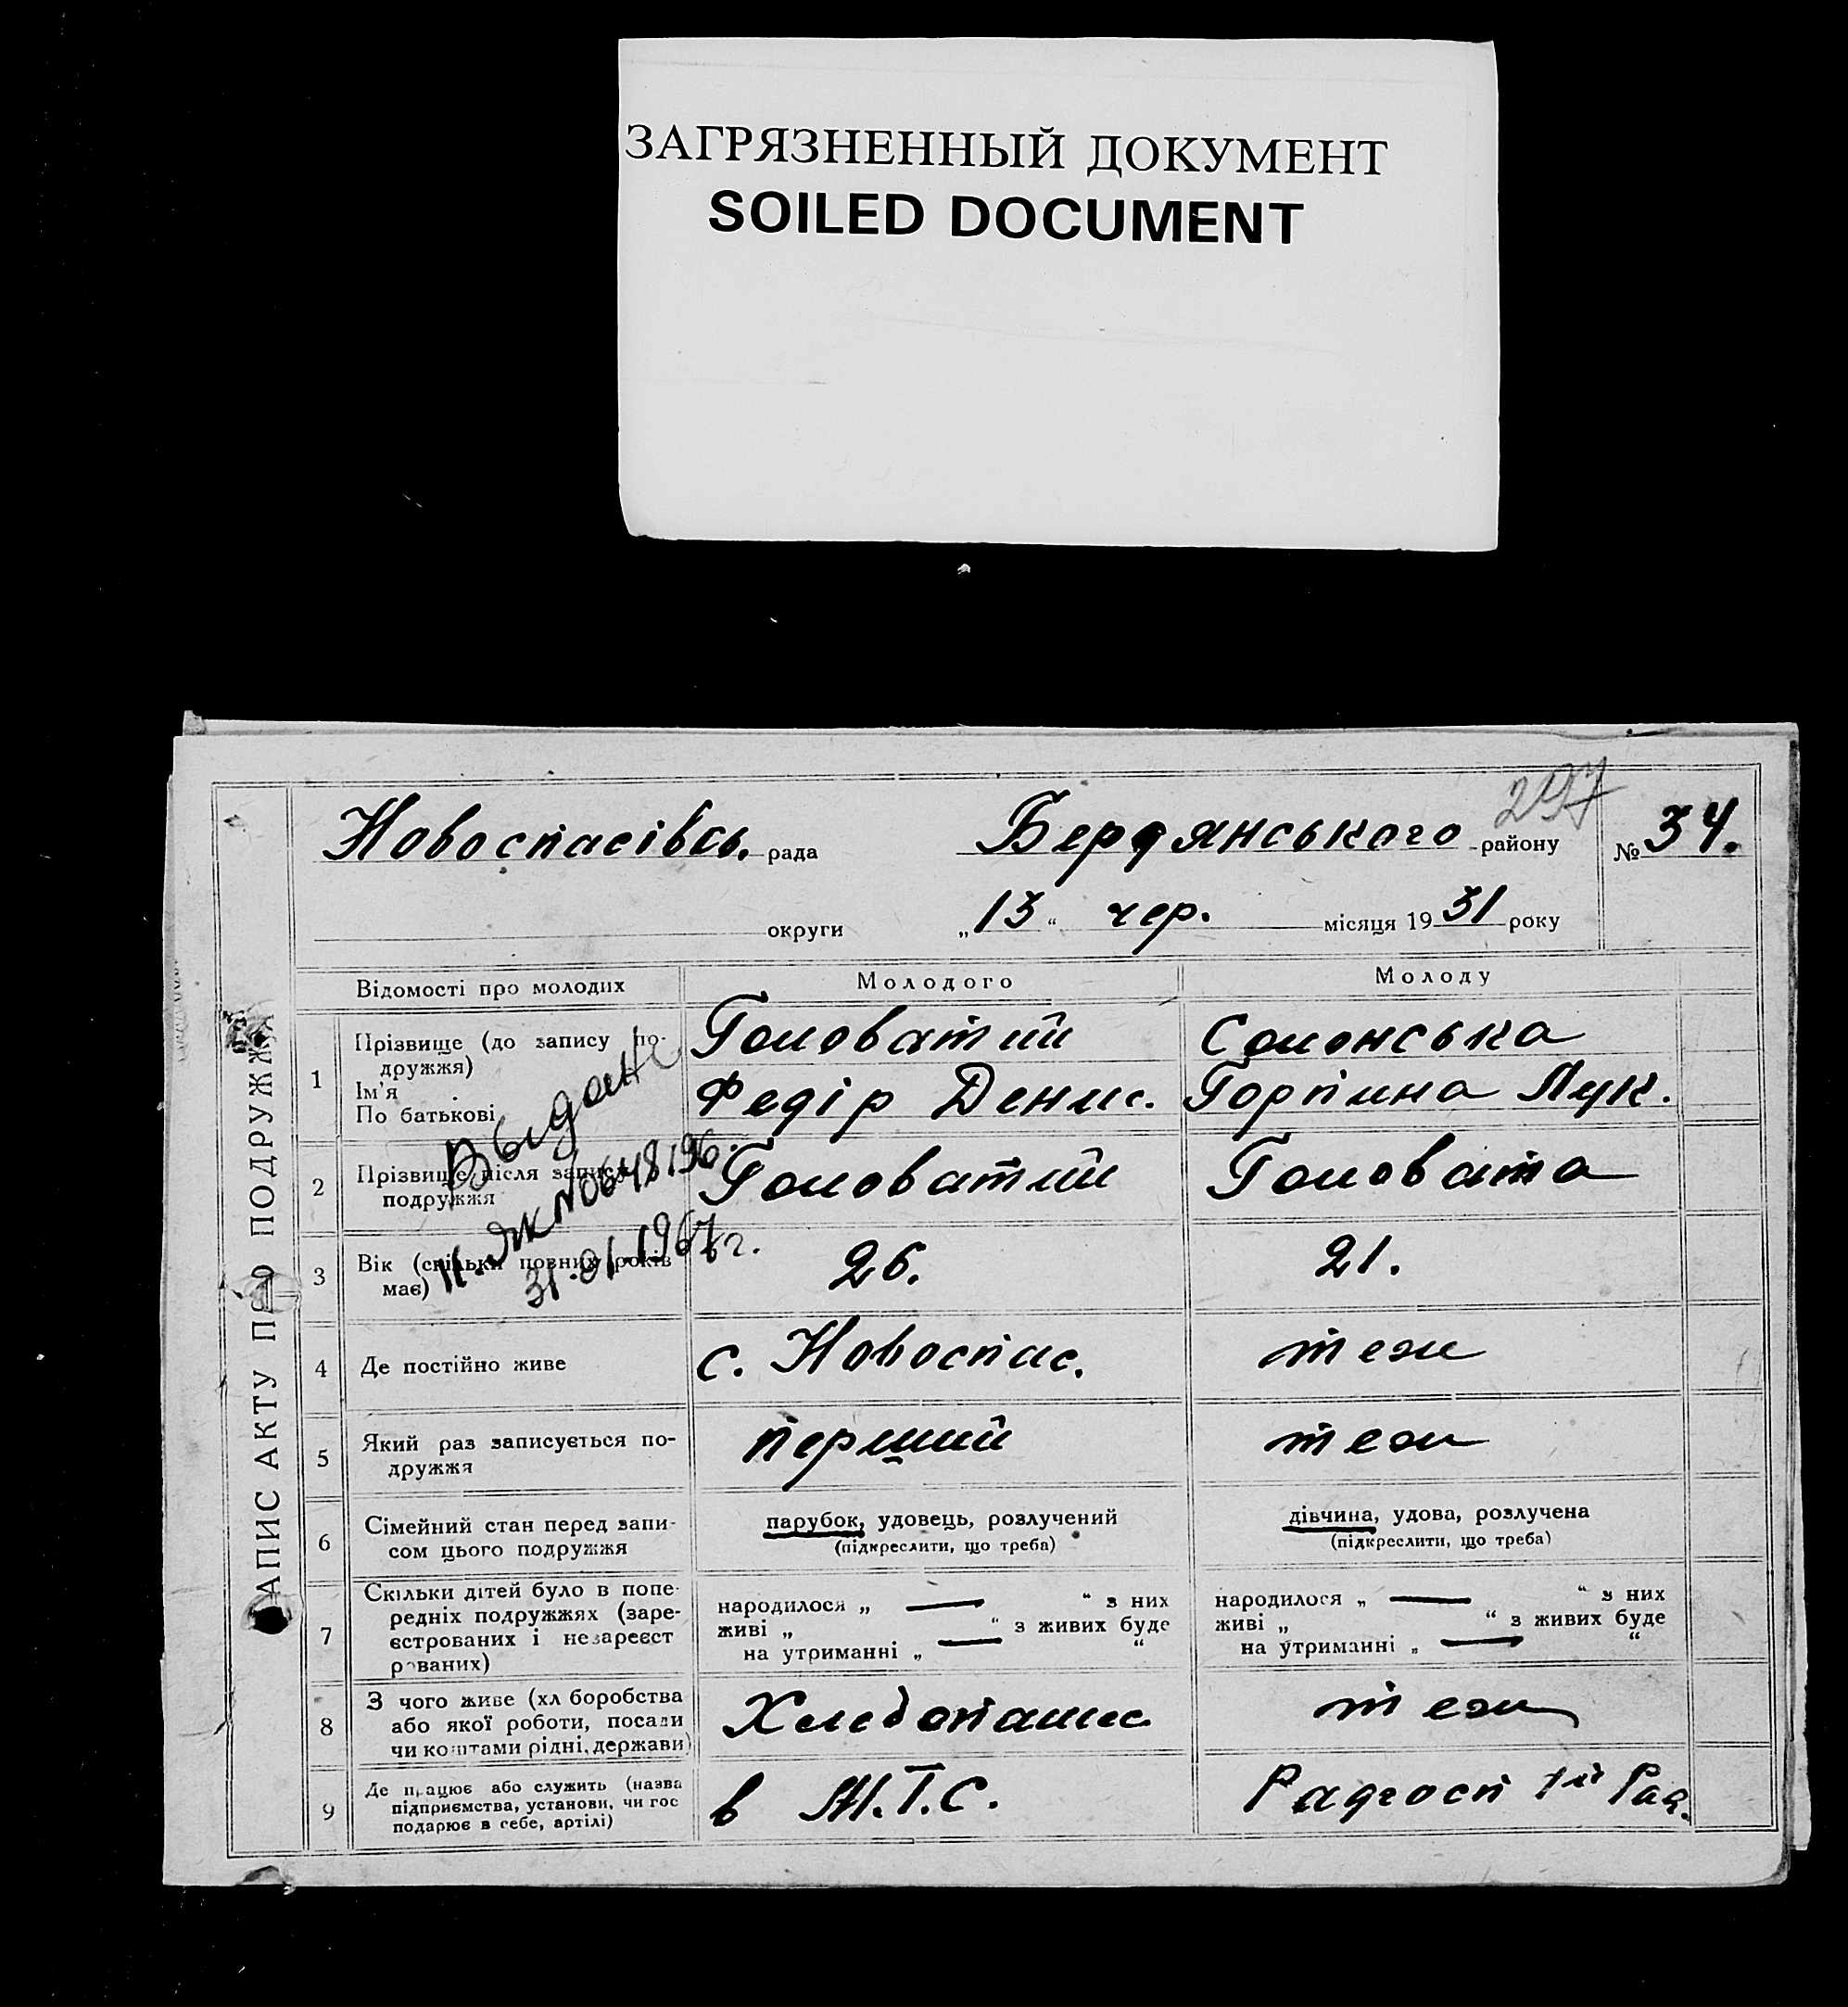 ЗАГРЯЗНЕННЫЙ ДОКУМЕНТ
SOILED DOCUMENT
297
Новоспасівсь. рада Бердянського району № 34.
округи „13“ чер. місяця 1931 року
ЗАПИС АКТУ ПРО ПОДРУЖЖЯ
Відомості про молодих Молодого Молоду
1 Прізвище (до запису по-
дружжя)
Ім'я
По батькові
Головатий Солонська
Федір Денис. Горпина Лук.
Выдано
II. ЯК №0648196.
31.01.1967г.
2 Прізвище після запису
подружжя
Головатий Головата
3 Вік (скільки повних років
має)
26. 21.
4 Де постійно живе с. Новоспас. теж
5 Який раз записується по-
дружжя
перший теж
6 Сімейний стан перед запи-
сом цього подружжя
парубок, удовець, розлучений дівчина, удова, розлучена
(підкреслити, що треба) (підкреслити, що треба)
7 Скільки дітей було в попе-
редніх подружжях (заре-
єстрованих і незареєст
рованих)
народилося „ — “ з них народилося „ — “ з них
живі „ “ з живих буде живі „ “ з живих буде
на утриманні „ — “ на утриманні „ — “
8 З чого живе (хл боробства
або якої роботи, посади
чи коштами рідні, держави)
Хлебопаше теж
9 Де працює або служить (назва
підприємства, установи, чи гос
подарює в себе, артілі)
в М.Т.С. Радгосп 1й